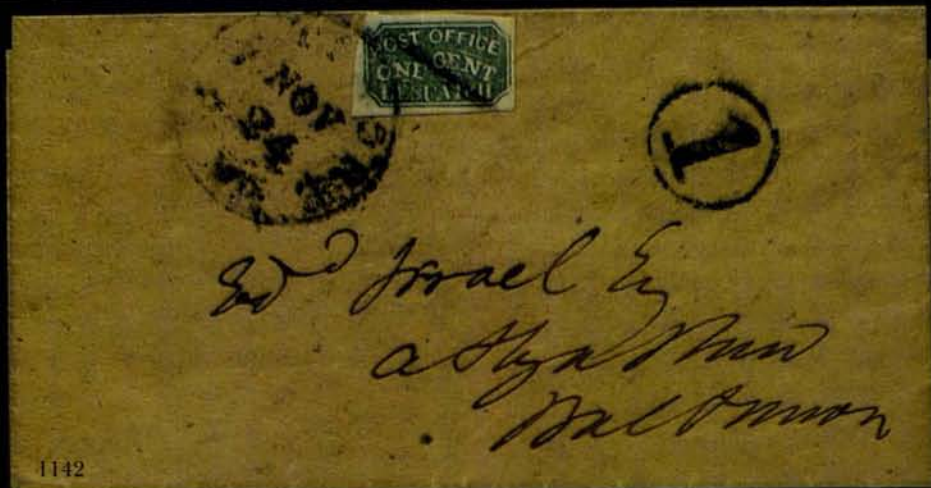 POST OFFICE
ONE CENT
DESPATCH
NOV
24
1
Edd Israel Esq
Baltimore
1142